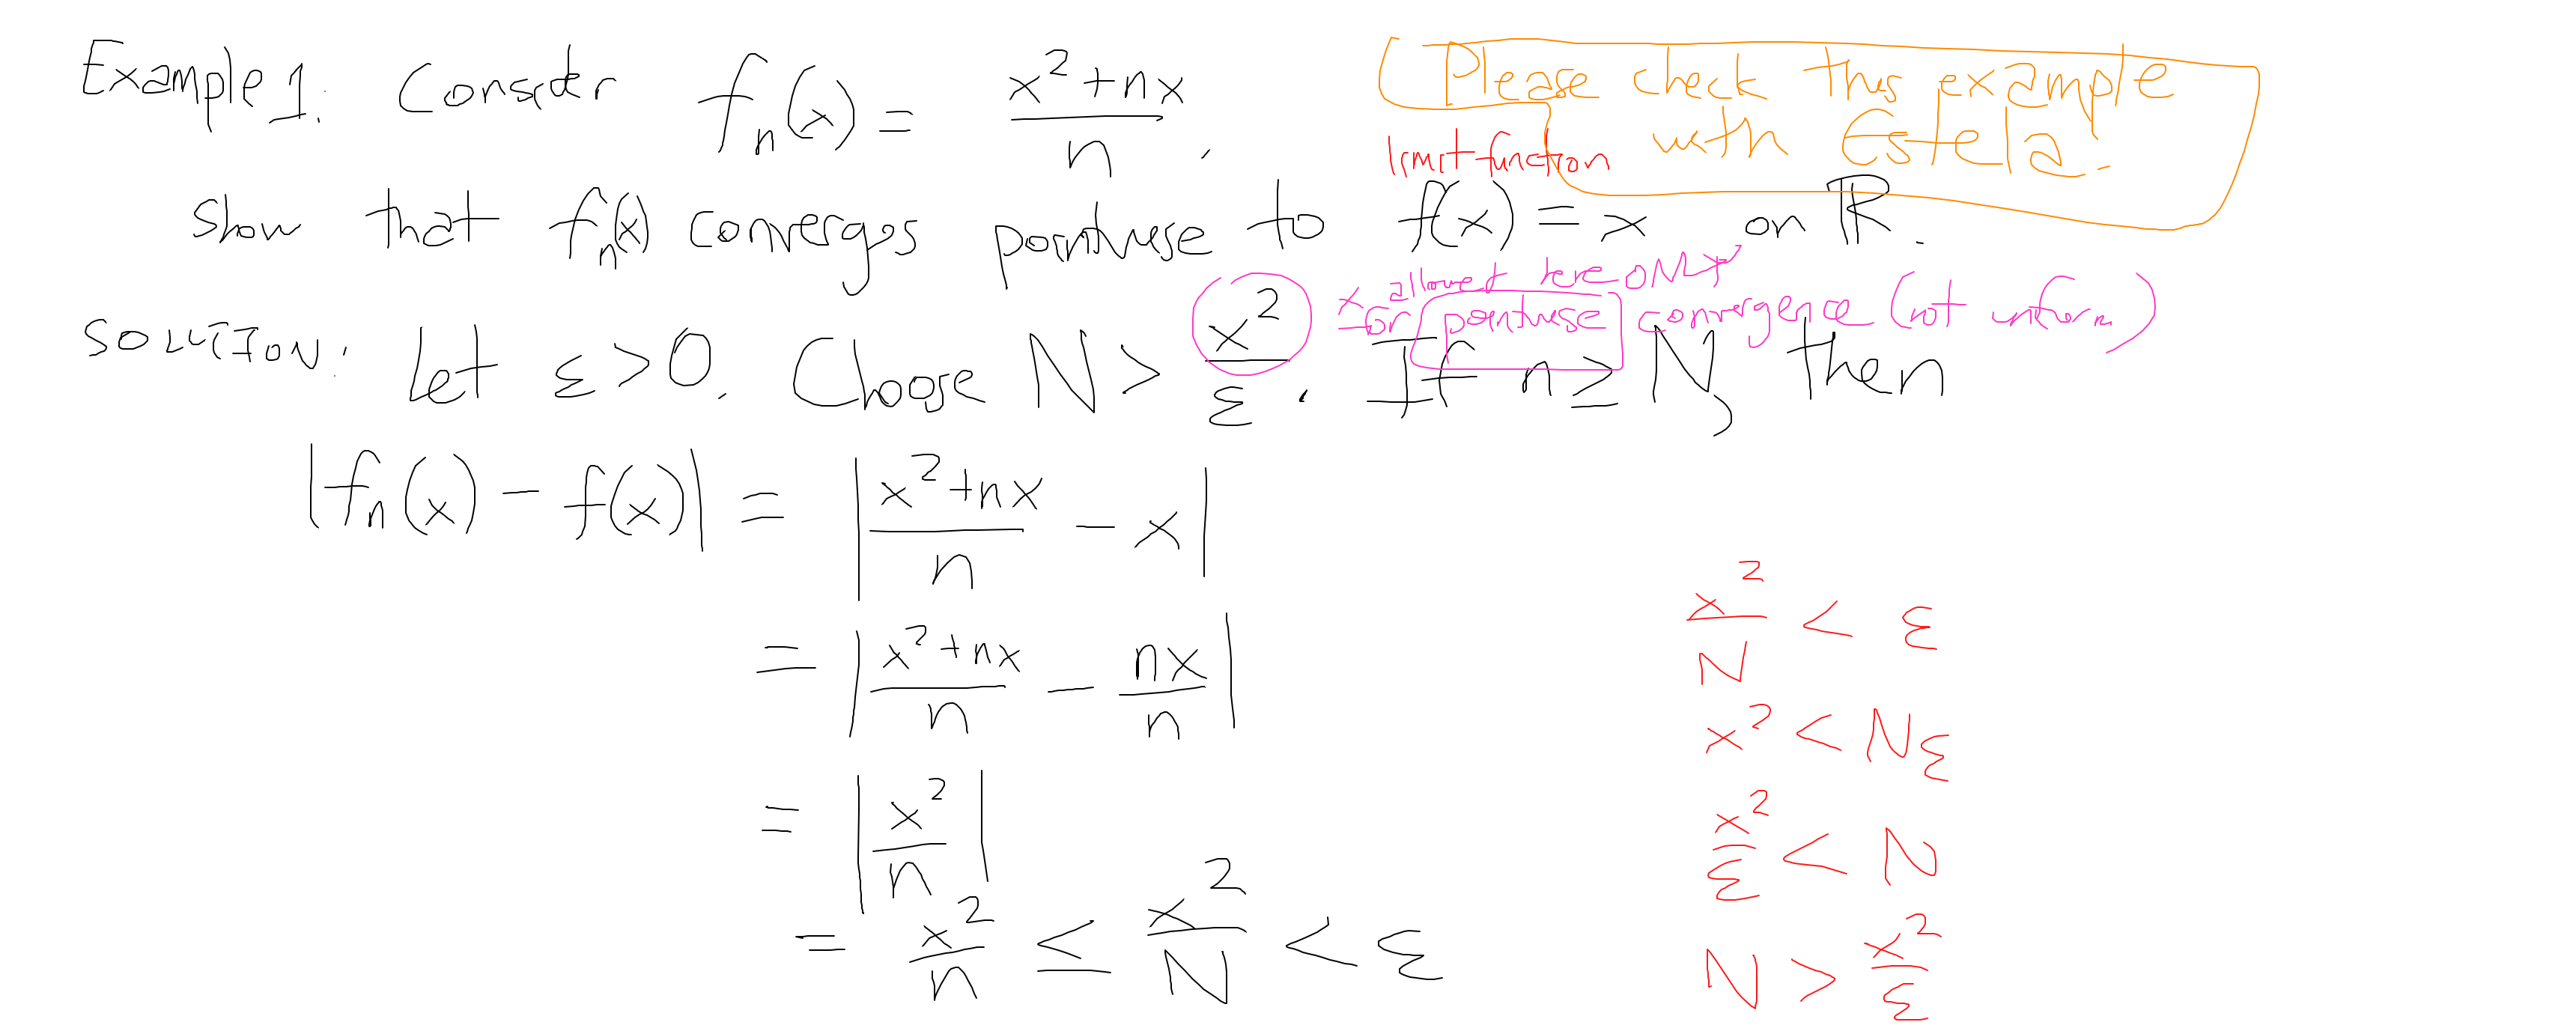 Example 1: Consider fₙ(x) = (x² + nx)/n.
Please check this example
with Estela!
limit function
Show that fₙ(x) converges pointwise to f(x) = x on ℝ.
x allowed here ONLY
for pointwise convergence (not uniform)
SOLUTION: Let ε > 0. Choose N > x²/ε. If n ≥ N, then
|fₙ(x) - f(x)| = |(x² + nx)/n - x|
= |(x² + nx)/n - nx/n|
= |x²/n|
= x²/n ≤ x²/N < ε
x²/N < ε
x² < Nε
x²/ε < N
N > x²/ε